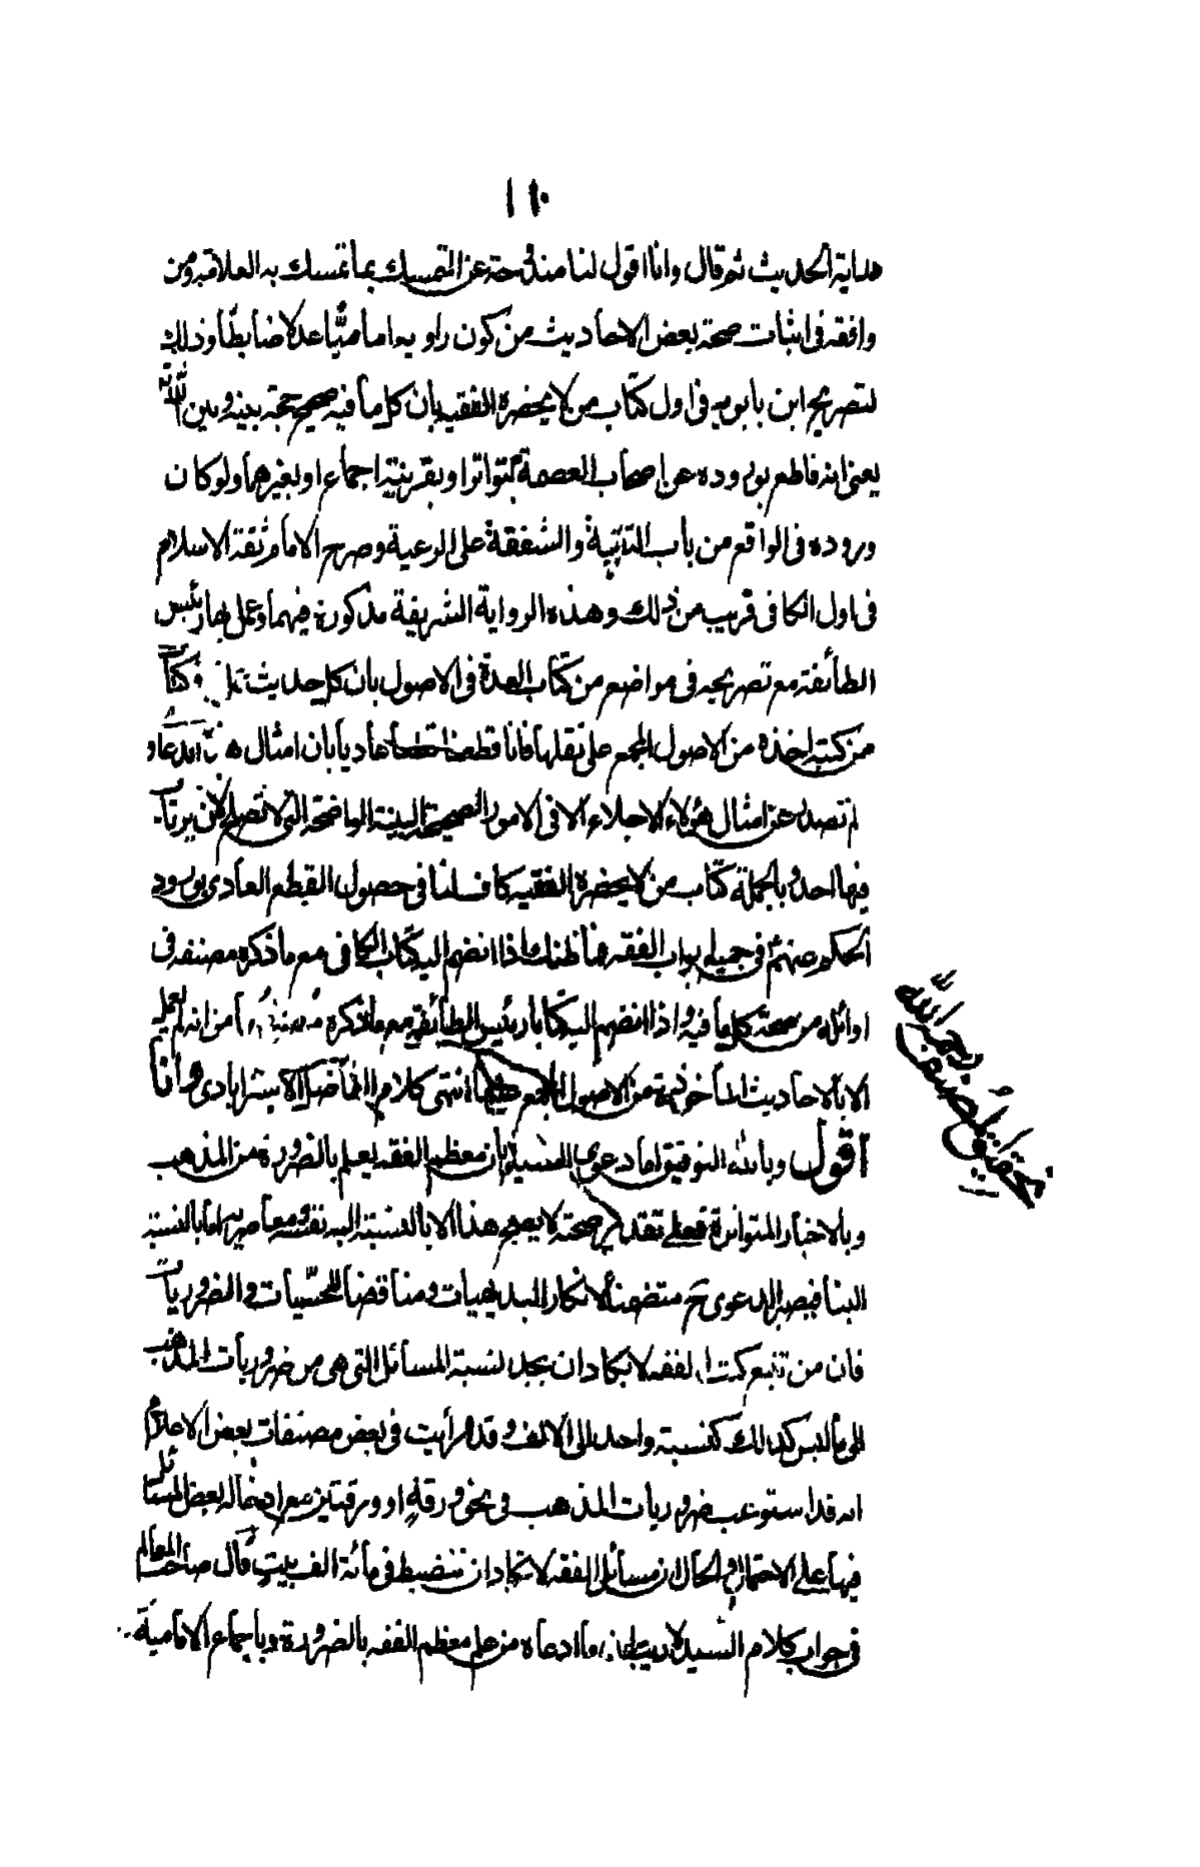 ١١٠
هداية الحديث ثم قال وانا اقول لنا مندوحة عن التمسك بما تمسك به العلامة ومن
وافقه فى اثبات صحة بعض الاحاديث من كون راويه اماميّا عدلا ضابطا وذلك
لتصريح ابن بابويه فى اول كتاب من لا يحضره الفقيه بأن كل ما فيه صحيح حجة بينه وبين الله تع
يعنى انه قاطع بوروده عن اصحاب العصمة بتواتر او بقرينة اجماع او بغيرهما ولو كان
وروده فى الواقع من باب التقية والشفقة على الرعية وصرح الامام ثقة الاسلام
فى اول الكافى قريب من ذلك وهذه الرواية الشريفة مذكورة فيهما وعمل بها رئيس
الطائفة مع تصريحه فى مواضع من كتاب العدة فى الاصول بان كل حديث
من كتبه اخذه من الاصول المجمع على نقلها فانا قطعنا قطعا عاديا بان امثال
لم تصدر عن امثال هؤلاء الاجلاء الا فى الامور الصحيحة البينة الواضحة التى لا تصلح لان يرتاب
فيها احد وبالجملة كتاب من لا يحضره الفقيه كاف لنا فى حصول القطع العادى بورود
الحكم عنهم فى جميع ابواب الفقه فما ظنك ماذا انضم اليه كتاب الكافى مع ما ذكره مصنفه فى
اوائله من صحة كل ما فيه واذا انضم اليه كتابا رئيس الطائفة مع ما ذكره من انه لم يعمل
الا بالاحاديث المأخوذة من الاصول المجمع عليها انتهى كلام الفاضل الاسترابادى وانا
اقول وبالله التوفيق اما دعوى السيد بان معظم الفقه يعلم بالضرورة من المذهب
وبالاخبار المتواترة فعلى تقدير صحته لا يصح هذا الا بالنسبة اليه نفسه ومعاصريه اما بالنسبة
الينا فيصير الدعوى ح متضمنا لانكار البديهيات ومناقضا للحسّيات والضروريات
فان من تتبع كتب الفقه لا يكاد ان يجد لنسبة المسائل التى هى من ضروريات المذهب
الى ما ليس كذلك كنسبة واحد الى الالف وقد رأيت فى بعض مصنفات بعض الاعلام
انه قد استوعب ضروريات المذهب فى نحو ورقة او ورقتين مع ادخاله بعض المسائل
فيها على الاحتمال والحال ان مسائل الفقه لا تكاد ان تنضبط فى مائة الف بيت قال صاحب المعالم
فى جواب كلام السيد لا ريب ان ما ادعاه من علم معظم الفقه بالضرورة وباجماع الامامية
تحقيق المصنف رحمه الله